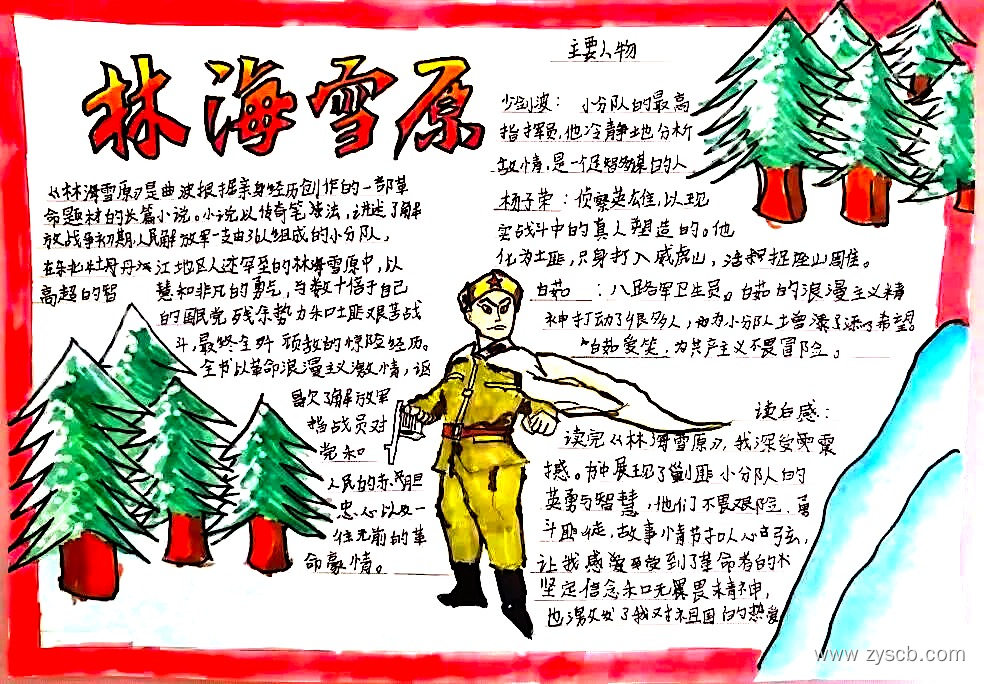 林海雪原
《林海雪原》是曲波根据亲身经历创作的一部革
命题材的长篇小说。小说以传奇笔法,讲述了解
放战争初期,人民解放军一支由36人组成的小分队,
在东北牡丹江地区人迹罕至的林海雪原中,以
高超的智慧和非凡的勇气,与数十倍于自己
的国民党残余势力和土匪艰苦战
斗,最终全歼顽敌的惊险经历。
全书以革命浪漫主义激情,讴
歌了解放军
指战员对
党和
人民的赤胆
忠心以及一
往无前的革
命豪情。
主要人物
少剑波:小分队的最高
指挥员,他冷静地分析
敌情,是一个足智多谋的人
杨子荣:侦察英雄,以现
实战斗中的真人塑造的。他
化为土匪,只身打入威虎山,活捉座山雕。
白茹:八路军卫生员。白茹的浪漫主义精
神打动了很多人,也为小分队增添了希望。
"白茹爱笑,为共产主义不畏冒险。
读后感:
读完《林海雪原》,我深受震
撼。书中展现了剿匪小分队的
英勇与智慧,他们不畏艰险,勇
斗匪徒,故事情节扣人心弦,
让我感受到了革命者的
坚定信念和无畏精神,
也激发了我对祖国的热爱
www.zyscb.com